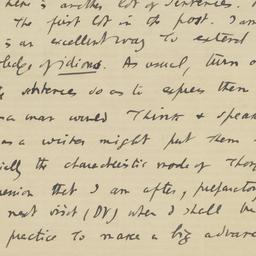 here is another lot of sentences.
The first lot in the post. I am
is an excellent way to extend
ledge of idioms. As usual, turn o
sentences so as to express them
man would think & speak
as a writer might put them
ially the characteristic mode of Thou
ression that I am after, preparatory
next visit (DV) when I shall be
practice to make a big advance